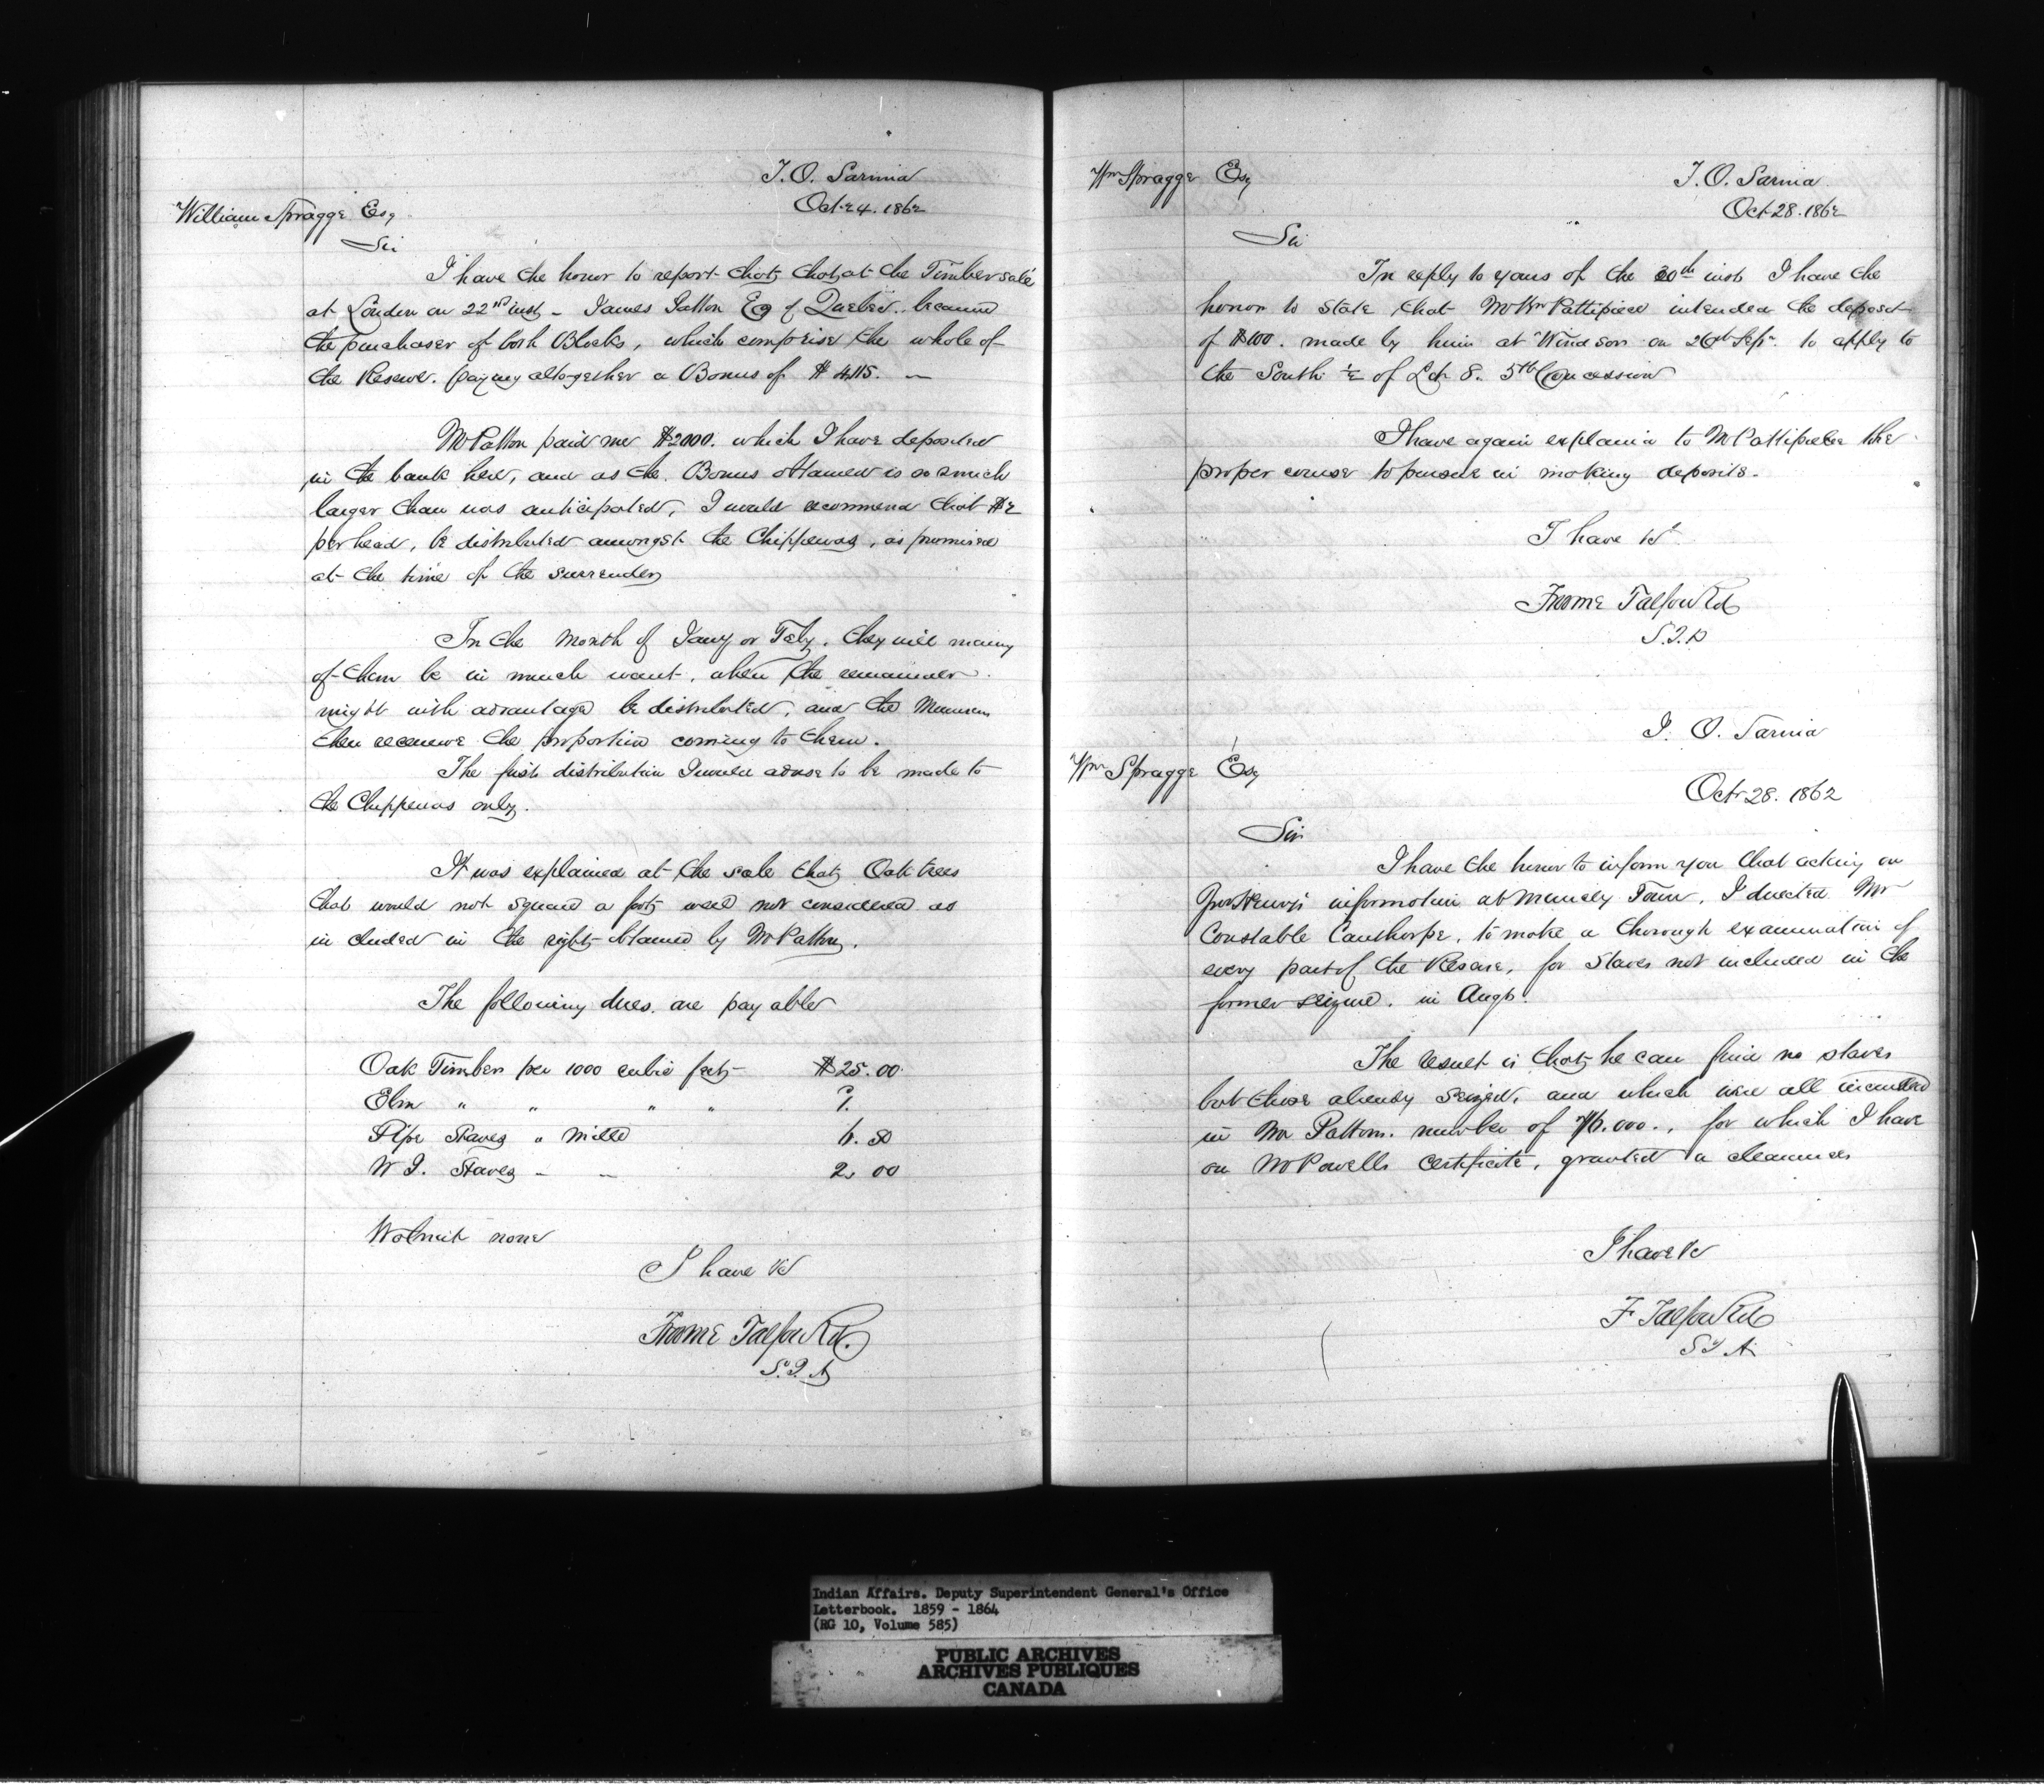 I. O. Sarnia
Oct 24. 1862
William Spragge Esq
Sir
I have the honor to report that, that, at the Timber sale
at London on 22nd inst - James Patton Esq of Quebec.. became
the purchaser of both Blocks, which comprise the whole of
the Reserve. paying altogether a Bonus of $ 4,115. -
Mr Patton paid me $2000. which I have deposited
in the bank here, and as the Bonus obtained is so much
larger than was anticipated, I would recommend that $2
per head, be distributed amongst the Chippewas, as promised
at the time of the surrender
In the month of Jany or Feby. they will many
of them be in much want, when the remainder
might with advantage be distributed, and the Munsees
then receive the proportion coming to them.
The first distribution I would advise to be made to
the Chippewas only.
It was explained at the sale that, Oak trees
that would not square a foot, were not considered as
included in the right obtained by Mr Patton.
The following dues are payable
Oak Timber per 1000 cubic feet $25.00
Elm " " " "
Pipe Staves " mille
W I. Staves - - 2. 00
Walnut none
I have &c
Froome Talfourd.
S.I.A
Wm Spragge Esq
I. O. Sarnia
Oct 28. 1862
Sir
In reply to yours of the 20th inst I have the
honor to state that Mr Wm Pattipiece intended the deposit
of $100. made by him at Windsor on 26th Sepr. to apply to
the South ½ of Lot 8. 5th Concession
I have again explained to Mr Pattipiece the
proper course to pursue in making deposits.
I have &c
Froome Talfourd
S.I.A
I. O. Sarnia
Wm Spragge Esq
Oct 28. 1862
Sir
I have the honor to inform you that acting on
information at Muncey Town, I directed Mr
Constable Cauthorpe, to make a thorough examination of
every part of the Reserve, for Staves not included in the
former seizure. in Augt.
The result is that, he can find no staves
but those already seized, and which were all included
in Mr Pattons. number of for which I have
on Mr Powells certificate, granted a clearance
I have &c
F Talfourd
S I A
Indian Affairs. Deputy Superintendent General's Office
Letterbook. 1859 - 1864
(RG 10, Volume 585)
PUBLIC ARCHIVES
ARCHIVES PUBLIQUES
CANADA